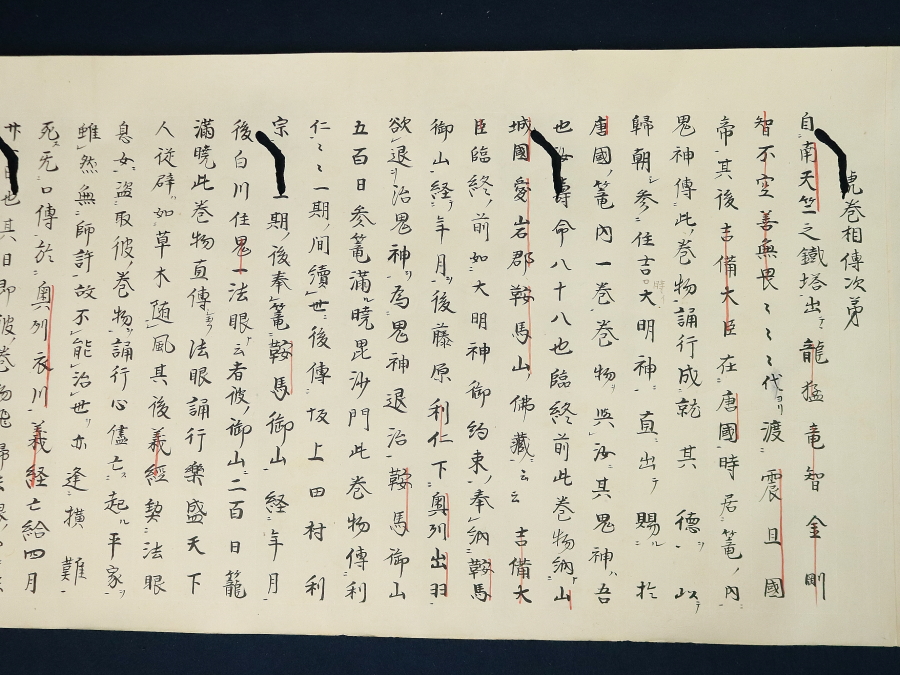 虎巻相傳次第
自南天竺之鐵塔出テ龍猛竜智金剛
智不空善無畏〻〻〻代ヨリ渡震旦國
帝其後吉備大臣在唐國時居篭内
鬼神傳此巻物誦行成就其德ヲ以テ
歸朝参住吉大明神直出テ賜ル於
唐國篭内一巻巻物與汝其鬼神吾
也汝壽命八十八也臨終前此巻物納山
城國愛岩郡鞍馬山佛藏云云 吉備大
臣臨終前如大明神御約束奉納鞍馬
御山経年月ヲ後藤原利仁下奥列出羽
欲退治鬼神ヲ為鬼神退治鞍馬御山
五百日参篭満ル曉毘沙門此巻物傳利
仁〻一期間續世後傳坂上田村利
宗 一期後奉篭鞍馬御山経年月
後白川住鬼一法眼ト云者彼御山二百日籠
滿曉此巻物直傳法眼誦行樂盛天下
人従辟如草木随風其後義經契法眼
息女盗取彼巻物ヲ誦行心儘亡起ル平家ヲ
雖然無師許故不能治世ヲ亦逢横難
死ス旡口傳於奥列衣川義経亡給四月
日也其日即彼巻物飛歸